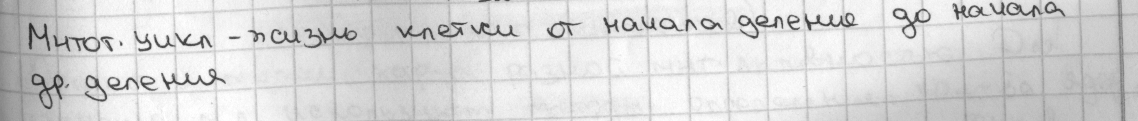 Митот. цикл - жизнь клетки от начала деление до начала
др. деления